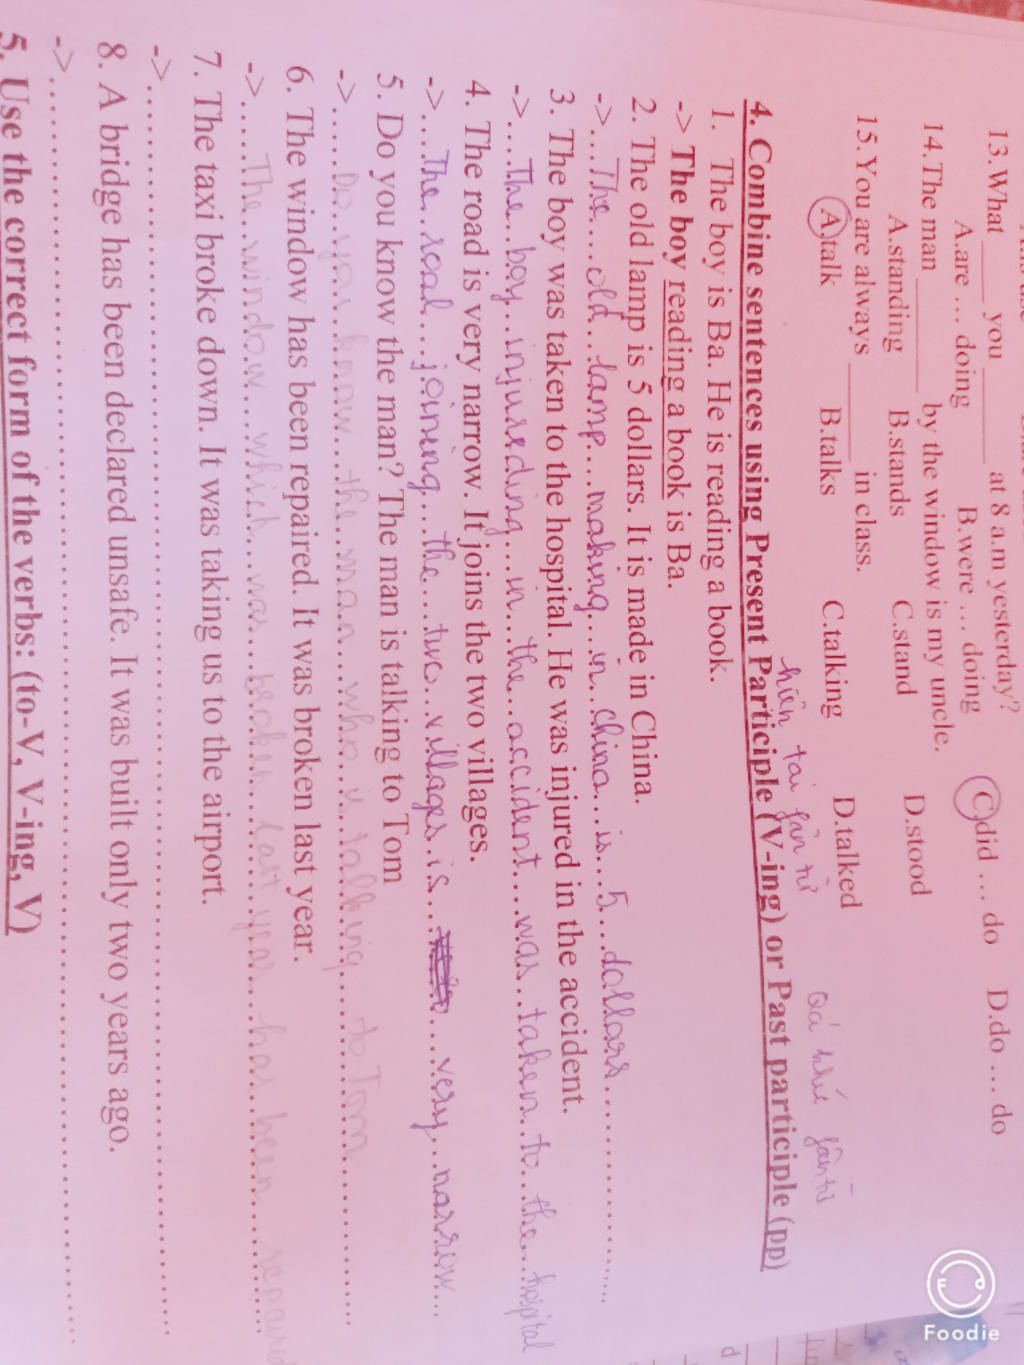 13.What ____ you ______ at 8 a.m yesterday?
A.are ... doing B.were ... doing C.did ... do D.do ... do
14.The man ______ by the window is my uncle.
A.standing B.stands C.stand D.stood
15.You are always ______ in class.
A.talk B.talks C.talking D.talked
hiện tại phân từ Quá khứ phân từ
4. Combine sentences using Present Participle (V-ing) or Past participle (pp)
1. The boy is Ba. He is reading a book.
-> The boy reading a book is Ba.
2. The old lamp is 5 dollars. It is made in China.
-> The old lamp making in china is 5 dollars
3. The boy was taken to the hospital. He was injured in the accident.
-> The boy injureding in the accident was taken to the hospital
4. The road is very narrow. It joins the two villages.
-> The road joining the two villages is very narrow
5. Do you know the man? The man is talking to Tom
-> Do you know the man who is talking to Tom
6. The window has been repaired. It was broken last year.
-> The window which was broken last year has been repaired
7. The taxi broke down. It was taking us to the airport.
->
8. A bridge has been declared unsafe. It was built only two years ago.
->
5. Use the correct form of the verbs: (to-V, V-ing, V)
Foodie